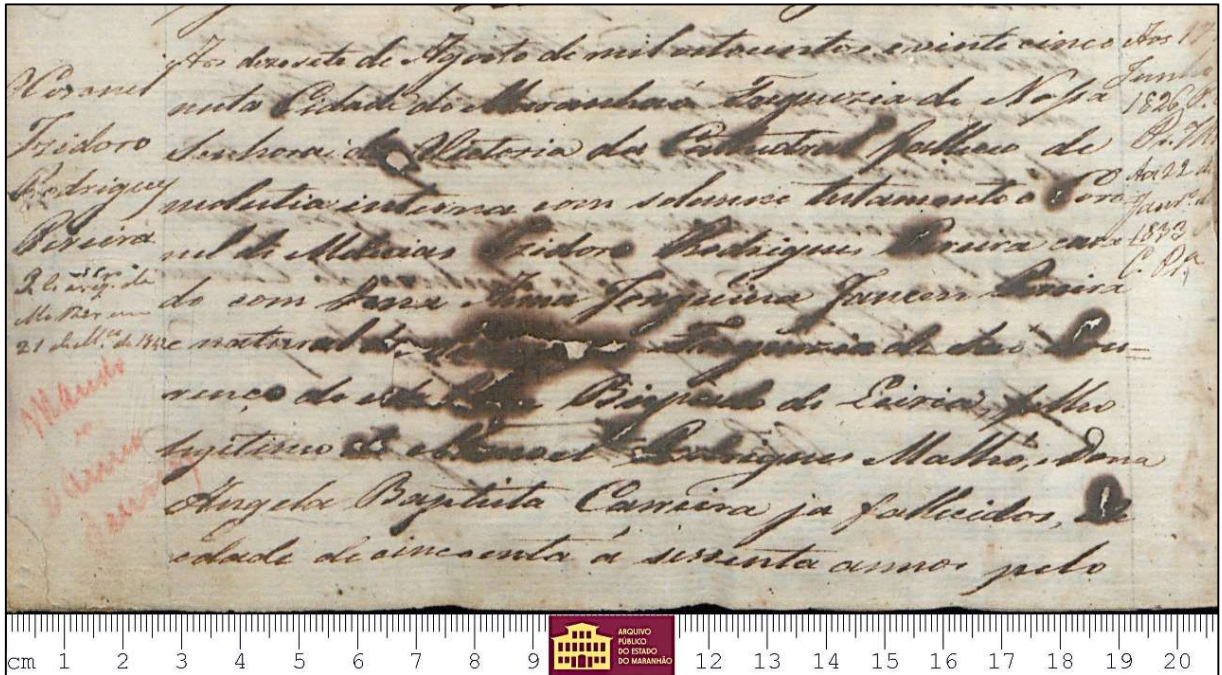 Aos dezesete de Agosto de mil oitocentos e vinte cinco
nesta Cidade do Maranhaõ Freguezia de Nossa
Senhora da Victoria da Cathedral falleceo de
molestia interna com solemne testamento o Coro
nel de Melicias Izidoro Rodrigues Pereira caza
do com Dona Anna Joaquina Jansem Pereira
e natural de Freguezia de Saõ Lou-
renço de Bispado de Leiria, filho
legitimo de Manoel Rodrigues Malho, e Dona
Angela Baptista Carreira ja fallecidos, de
edade de cincoenta á sessenta annos pelo
Coronel
Izidoro
Rodrigues
Pereira
Aos 17
Junho
1826
Aos 22 de
Janr.º de
1833
cm 1 2 3 4 5 6 7 8 9 12 13 14 15 16 17 18 19 20
ARQUIVO
PÚBLICO
DO ESTADO
DO MARANHÃO